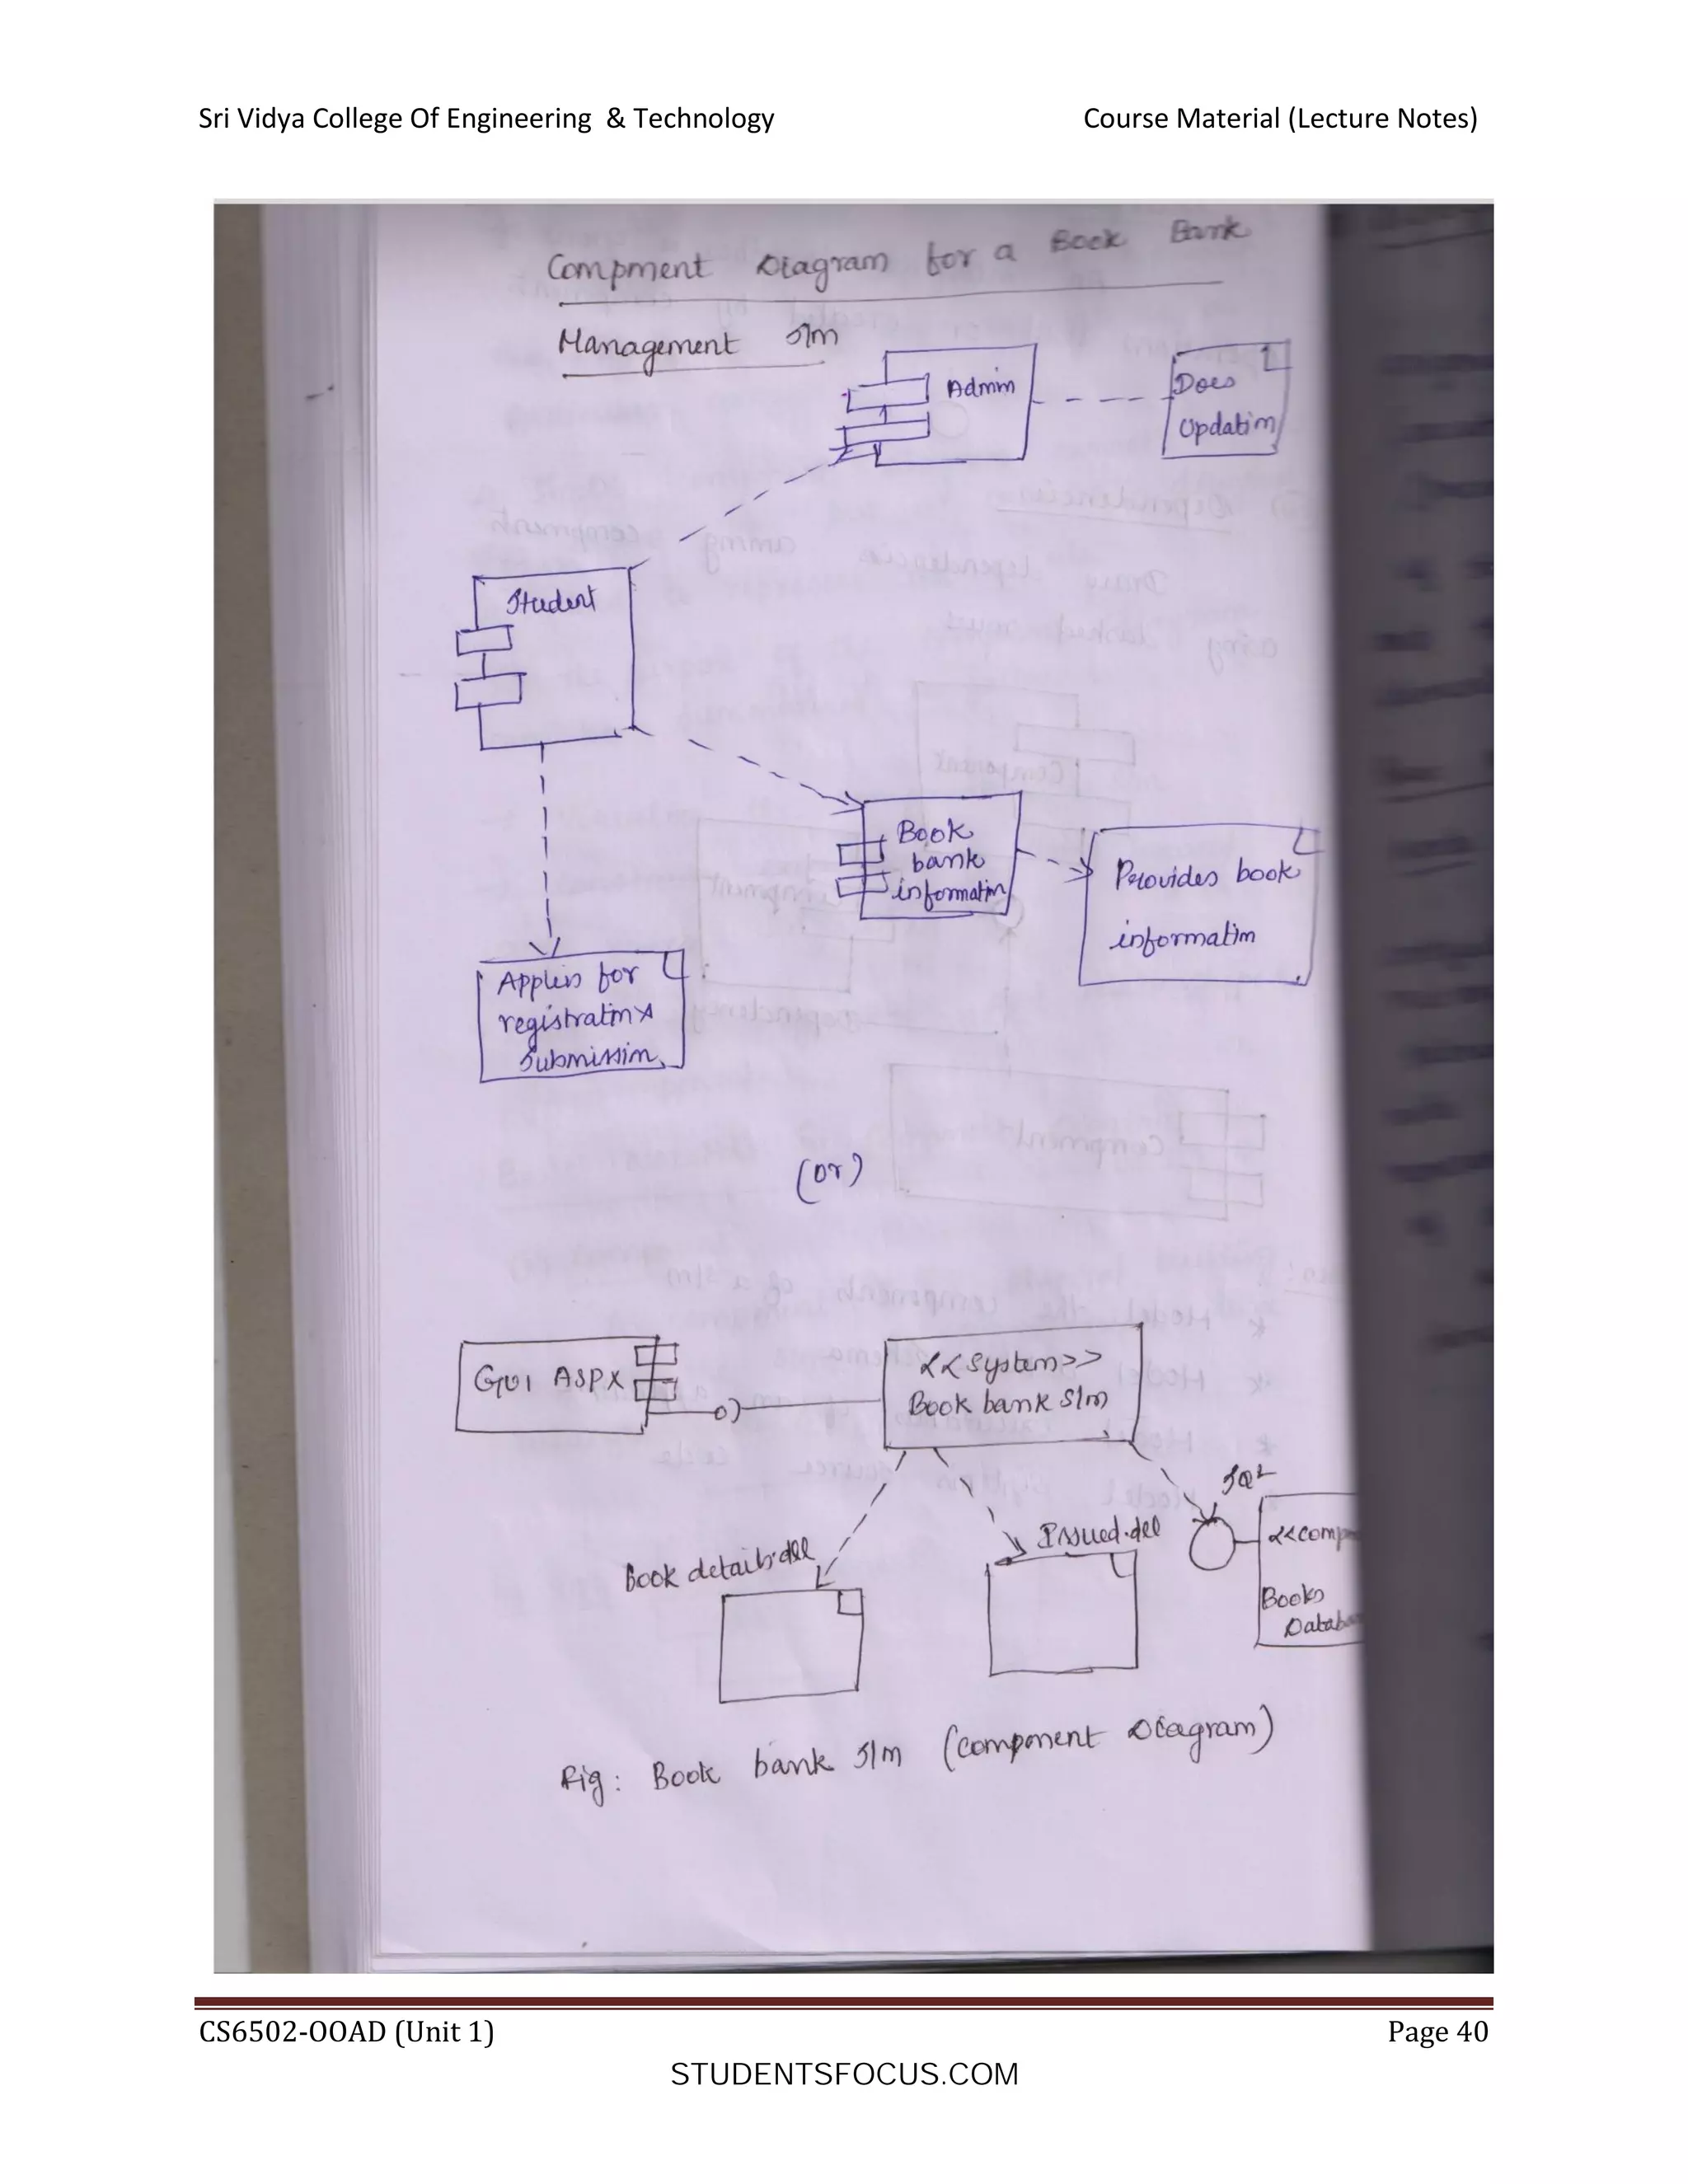 Sri Vidya College Of Engineering & Technology Course Material (Lecture Notes)
Component Diagram for a Book Bank
Management S/m
Admin
Does
Updation
Student
Book
bank
information
Provides book
information
Applies for
registration &
Submission
(or)
GUI ASPX
<<System>>
Book bank S/m
SQL
Book details.dll
Issued.dll
<<comp
Books
Databa
Fig: Book bank S/m (component Diagram)
CS6502-OOAD (Unit 1) Page 40
STUDENTSFOCUS.COM